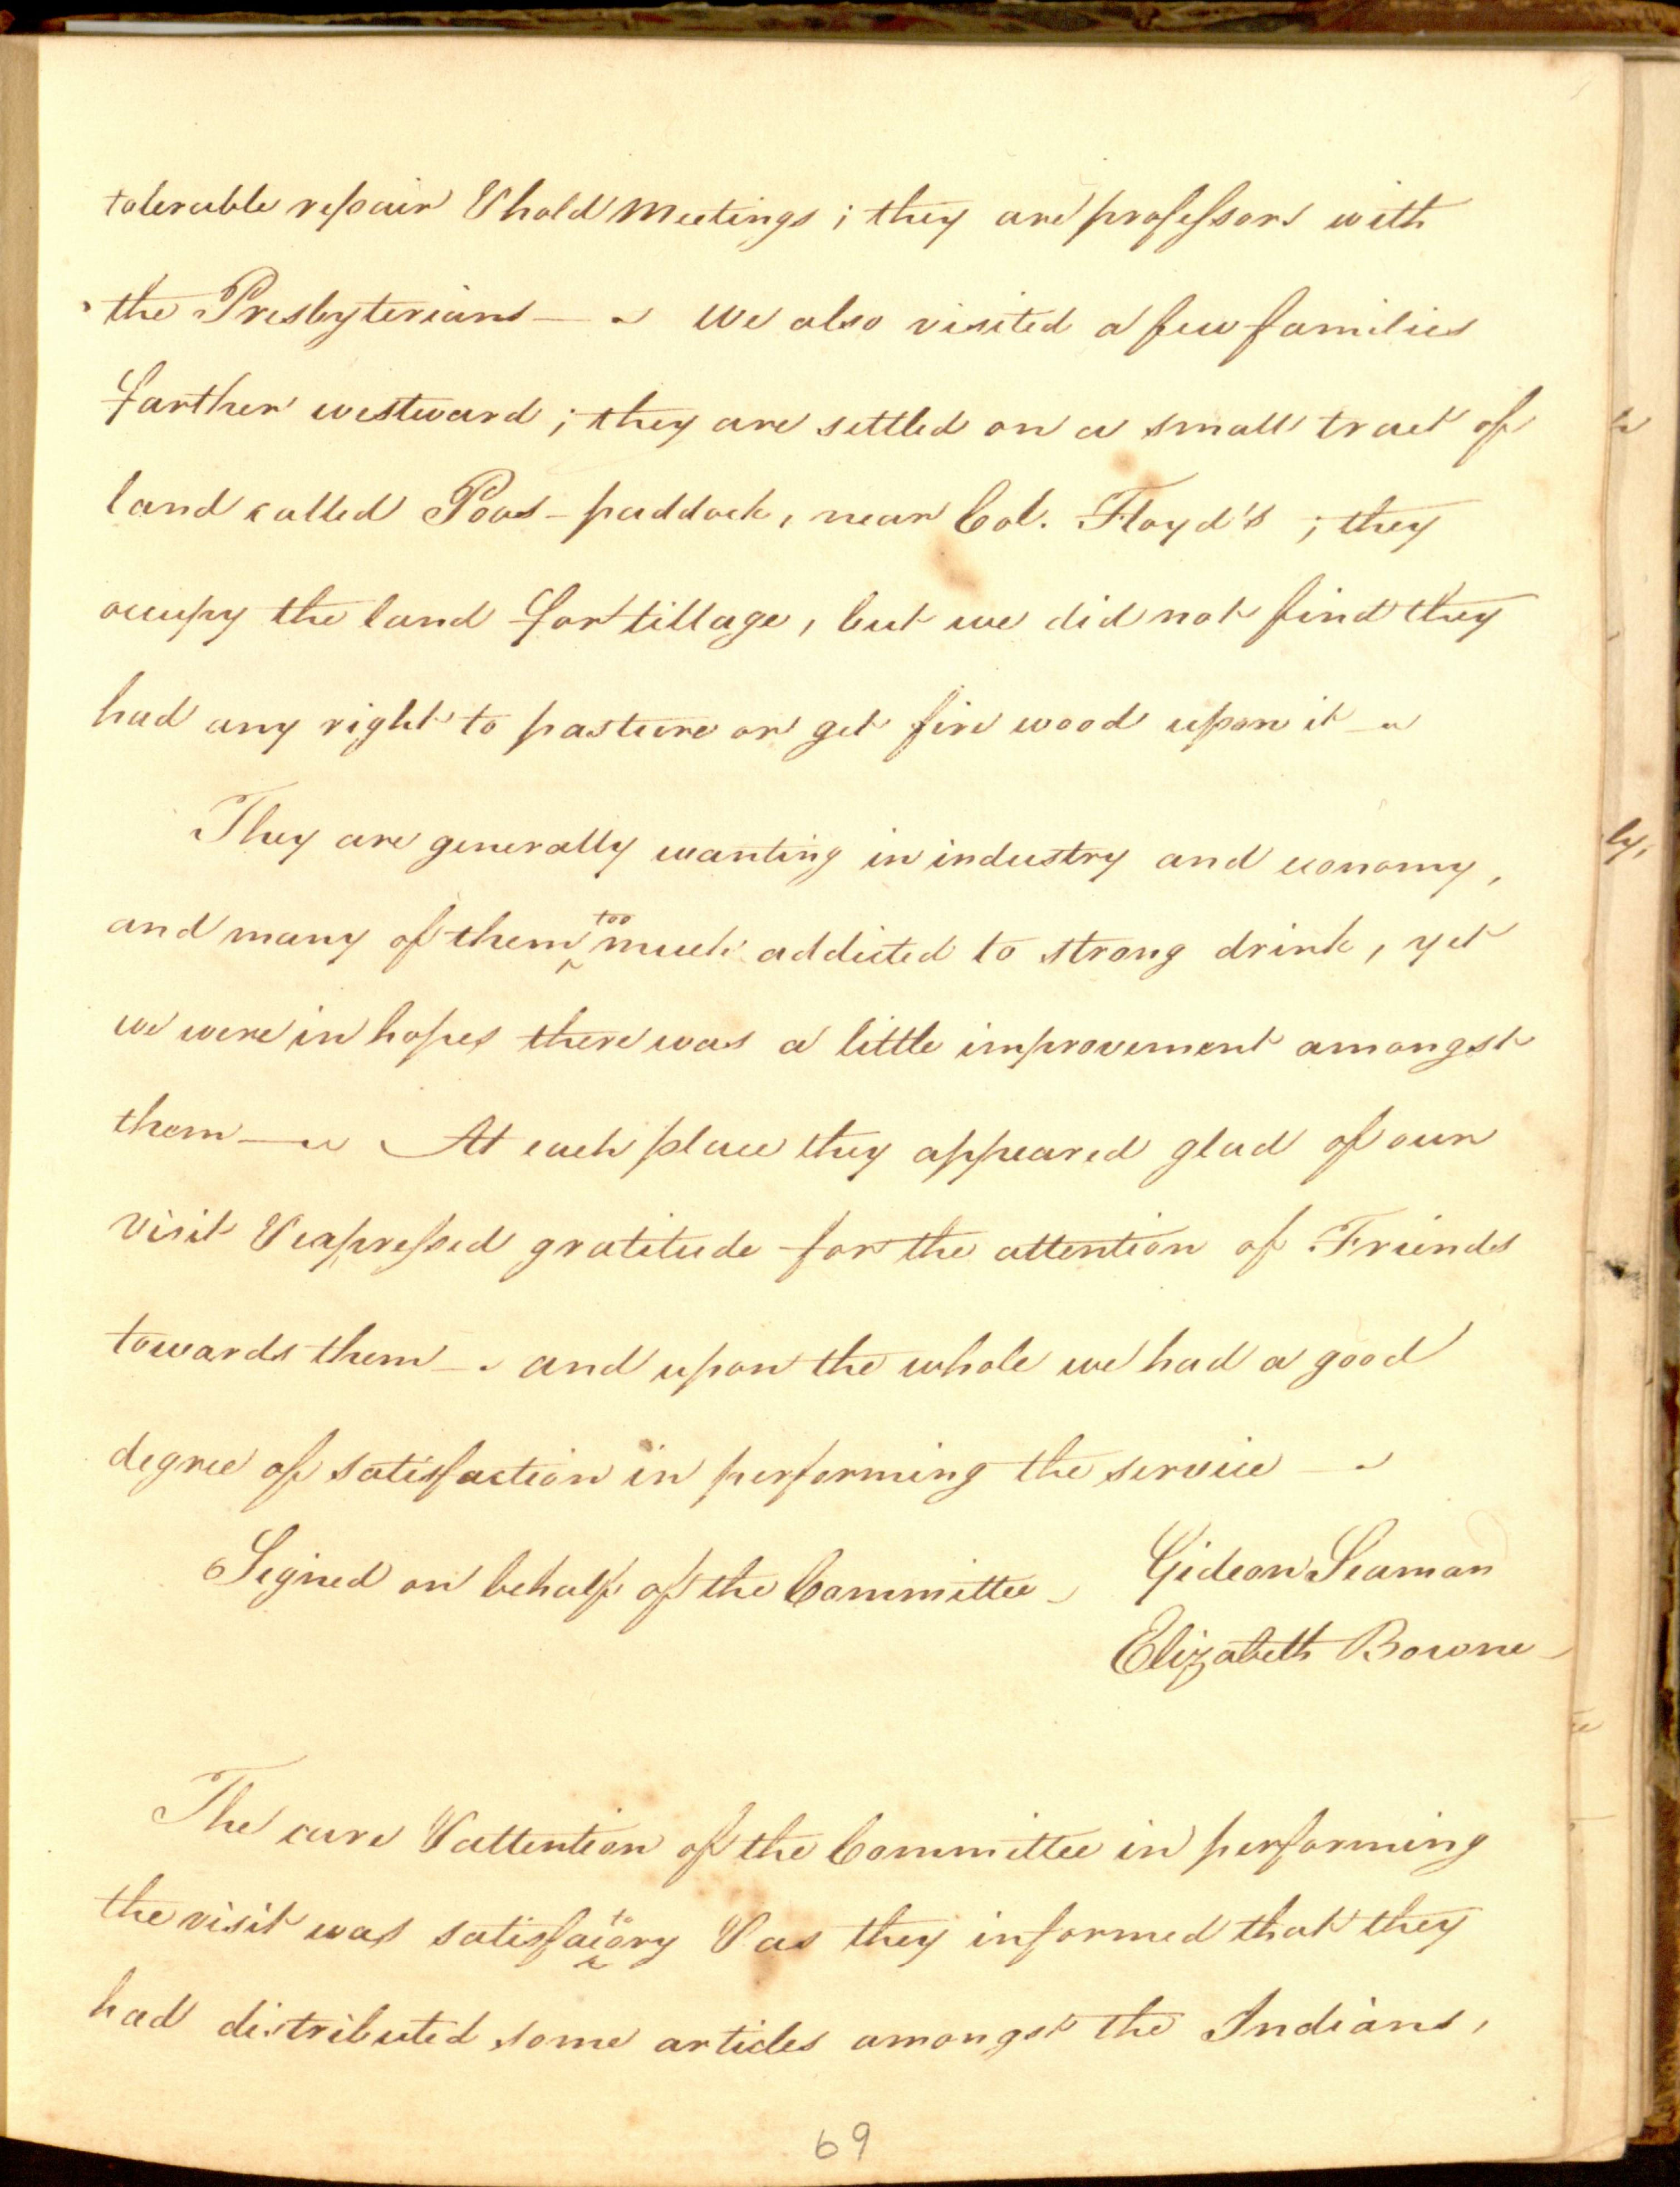 tolerable repair & hold Meetings ; they are professors with
the Presbyterians — We also visited a few families
farther westward ; they are settled on a small tract of
land called Poos-paddock, near Col. Floyd's ; they
occupy the land for tillage, but we did not find they
had any right to pasture or get fire wood upon it —
They are generally wanting in industry and economy,
and many of them too much addicted to strong drink, yet
we were in hopes there was a little improvement amongst
them — At each place they appeared glad of our
visit & expressed gratitude for the attention of Friends
towards them — and upon the whole we had a good
degree of satisfaction in performing the service —
Signed on behalf of the Committee — Gideon Seaman
Elizabeth Bowne
The care & attention of the Committee in performing
the visit was satisfactory & as they informed that they
had distributed some articles amongst the Indians,
69